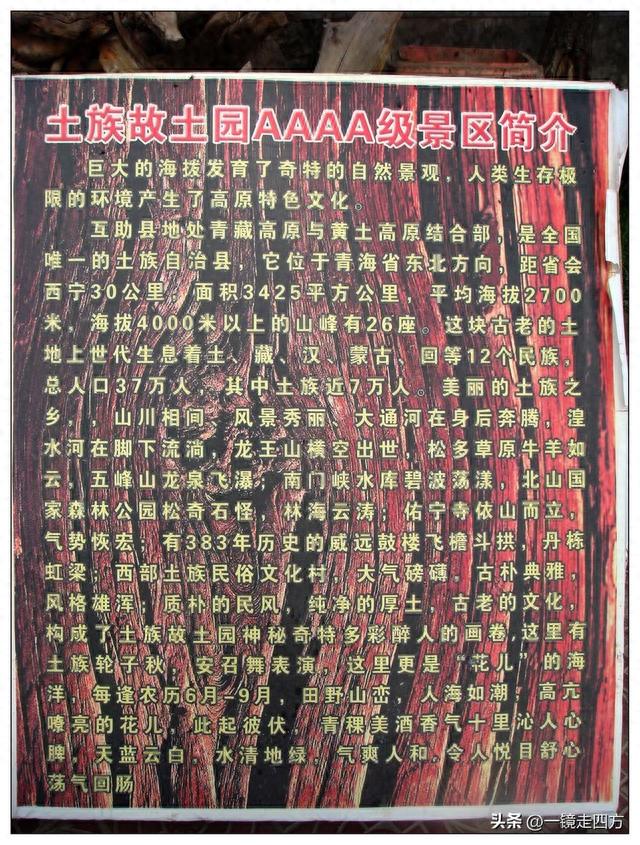 土族故土园AAAA级景区简介
巨大的海拨发育了奇特的自然景观，人类生存极
限的环境产生了高原特色文化。
互助县地处青藏高原与黄土高原结合部，是全国
唯一的土族自治县，它位于青海省东北方向，距省会
西宁30公里；面积3425平方公里，平均海拔2700
米，海拔4000米以上的山峰有26座。这块古老的土
地上世代生息着土、藏、汉、蒙古、回等12个民族，
总人口37万人，其中土族近7万人。美丽的土族之
乡，，山川相间、风景秀丽、大通河在身后奔腾，湟
水河在脚下流淌，龙王山横空出世，松多草原牛羊如
云，五峰山龙泉飞瀑；南门峡水库碧波荡漾，北山国
家森林公园松奇石怪，林海云涛；佑宁寺依山而立，
气势恢宏，有383年历史的威远鼓楼飞檐斗拱，丹栋
虹梁；西部土族民俗文化村，大气磅礴，古朴典雅，
风格雄浑；质朴的民风，纯净的厚土，古老的文化，
构成了土族故土园神秘奇特多彩醉人的画卷,这里有
土族轮子秋，安召舞表演，这里更是“花儿”的海
洋，每逢农历6月-9月，田野山峦，人海如潮，高亢
嘹亮的花儿，此起彼伏，青稞美酒香气十里沁人心
脾，天蓝云白，水清地绿，气爽人和,令人悦目舒心
荡气回肠
头条 @一镜走四方